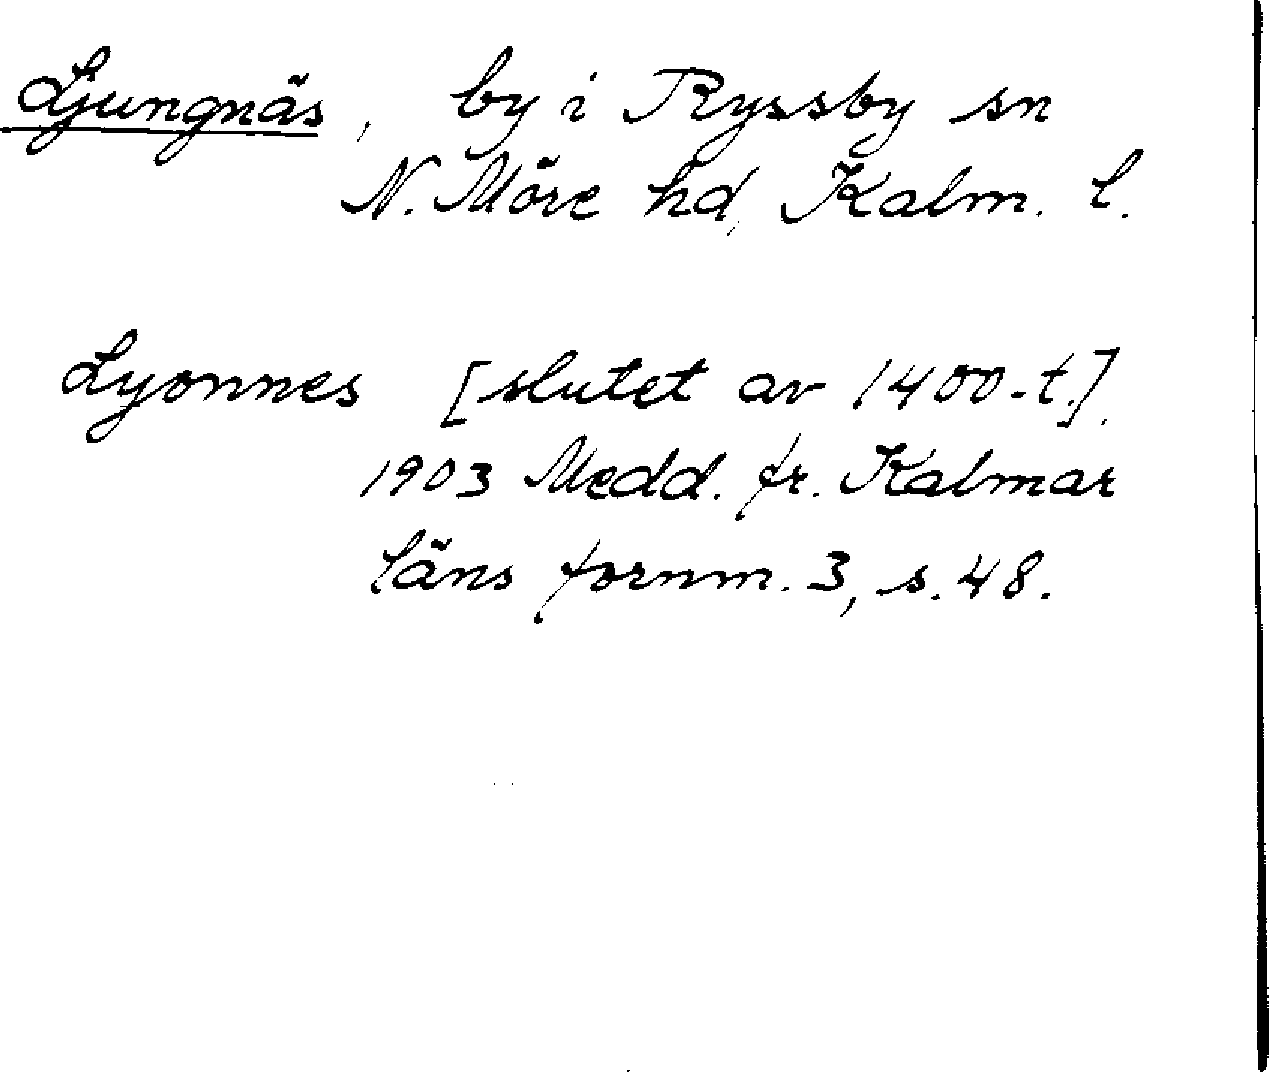 Ljungnäs, by i Ryssby sn
N. Möre hd, Kalm. l.
Lyonnes [slutet av 1400-t.].
1903 Medd. fr. Kalmar
läns fornm. 3, s. 48.